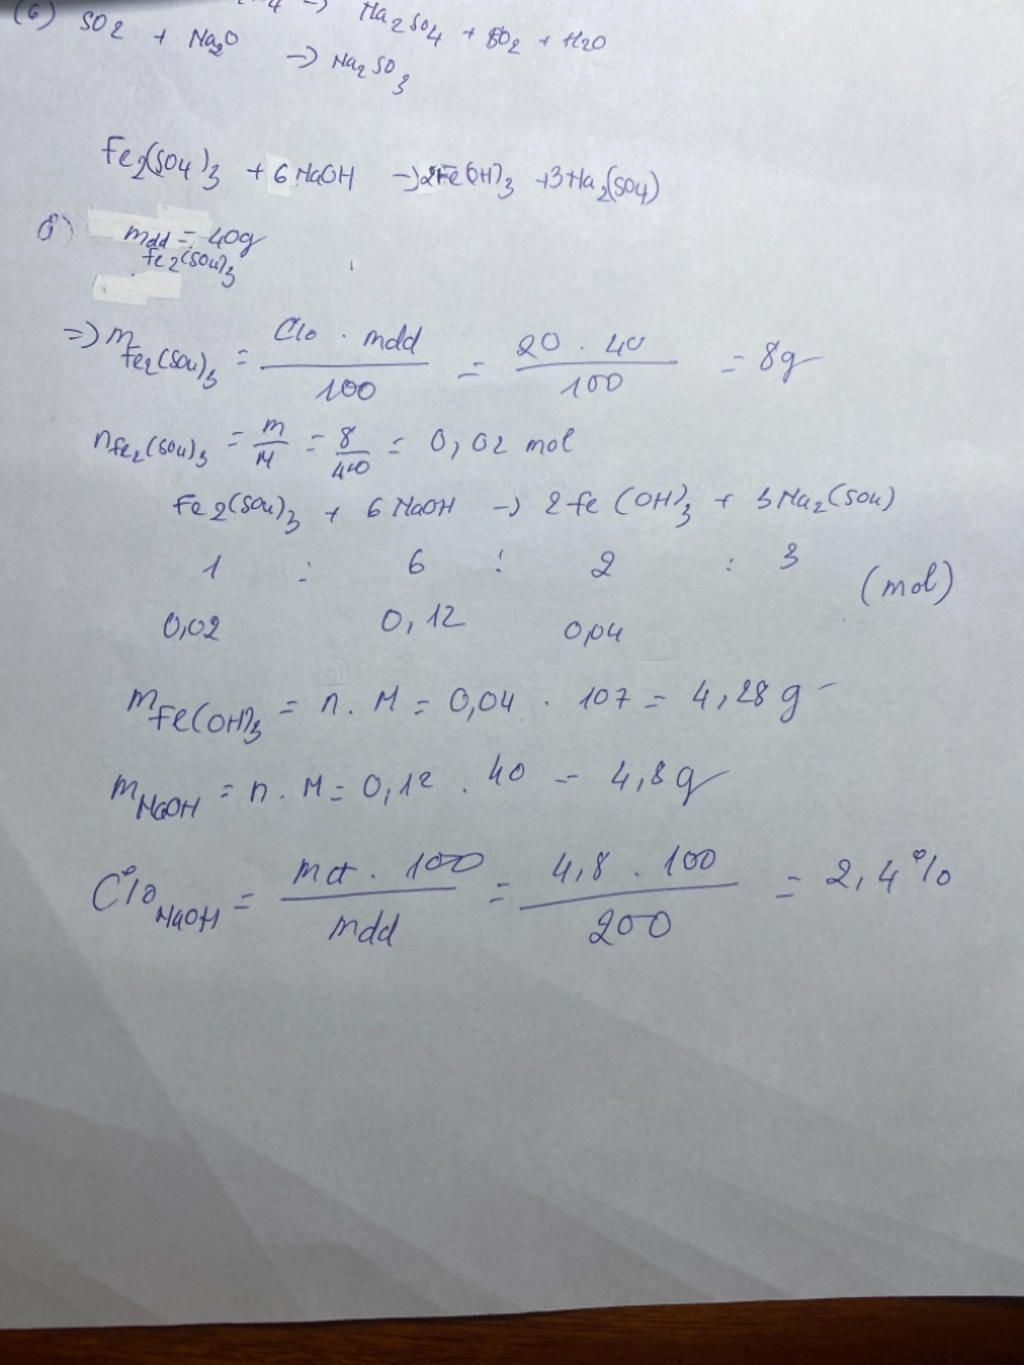 (6) SO2 + Na2O → Na2SO3
4 → Na2SO4 + SO2 + H2O
Fe2(SO4)3 + 6 NaOH → 2Fe(OH)3 + 3Na2(SO4)
mdd Fe2(SO4)3 = 40g
=> mFe2(SO4)3 = C% . mdd / 100 = 20 . 40 / 100 = 8g
nFe2(SO4)3 = m/M = 8/400 = 0,02 mol
Fe2(SO4)3 + 6 NaOH → 2 Fe(OH)3 + 3Na2(SO4)
1 : 6 : 2 : 3 (mol)
0,02 0,12 0,04
mFe(OH)3 = n . M = 0,04 . 107 = 4,28g
mNaOH = n . M = 0,12 . 40 = 4,8g
C%NaOH = mct . 100 / mdd = 4,8 . 100 / 200 = 2,4%